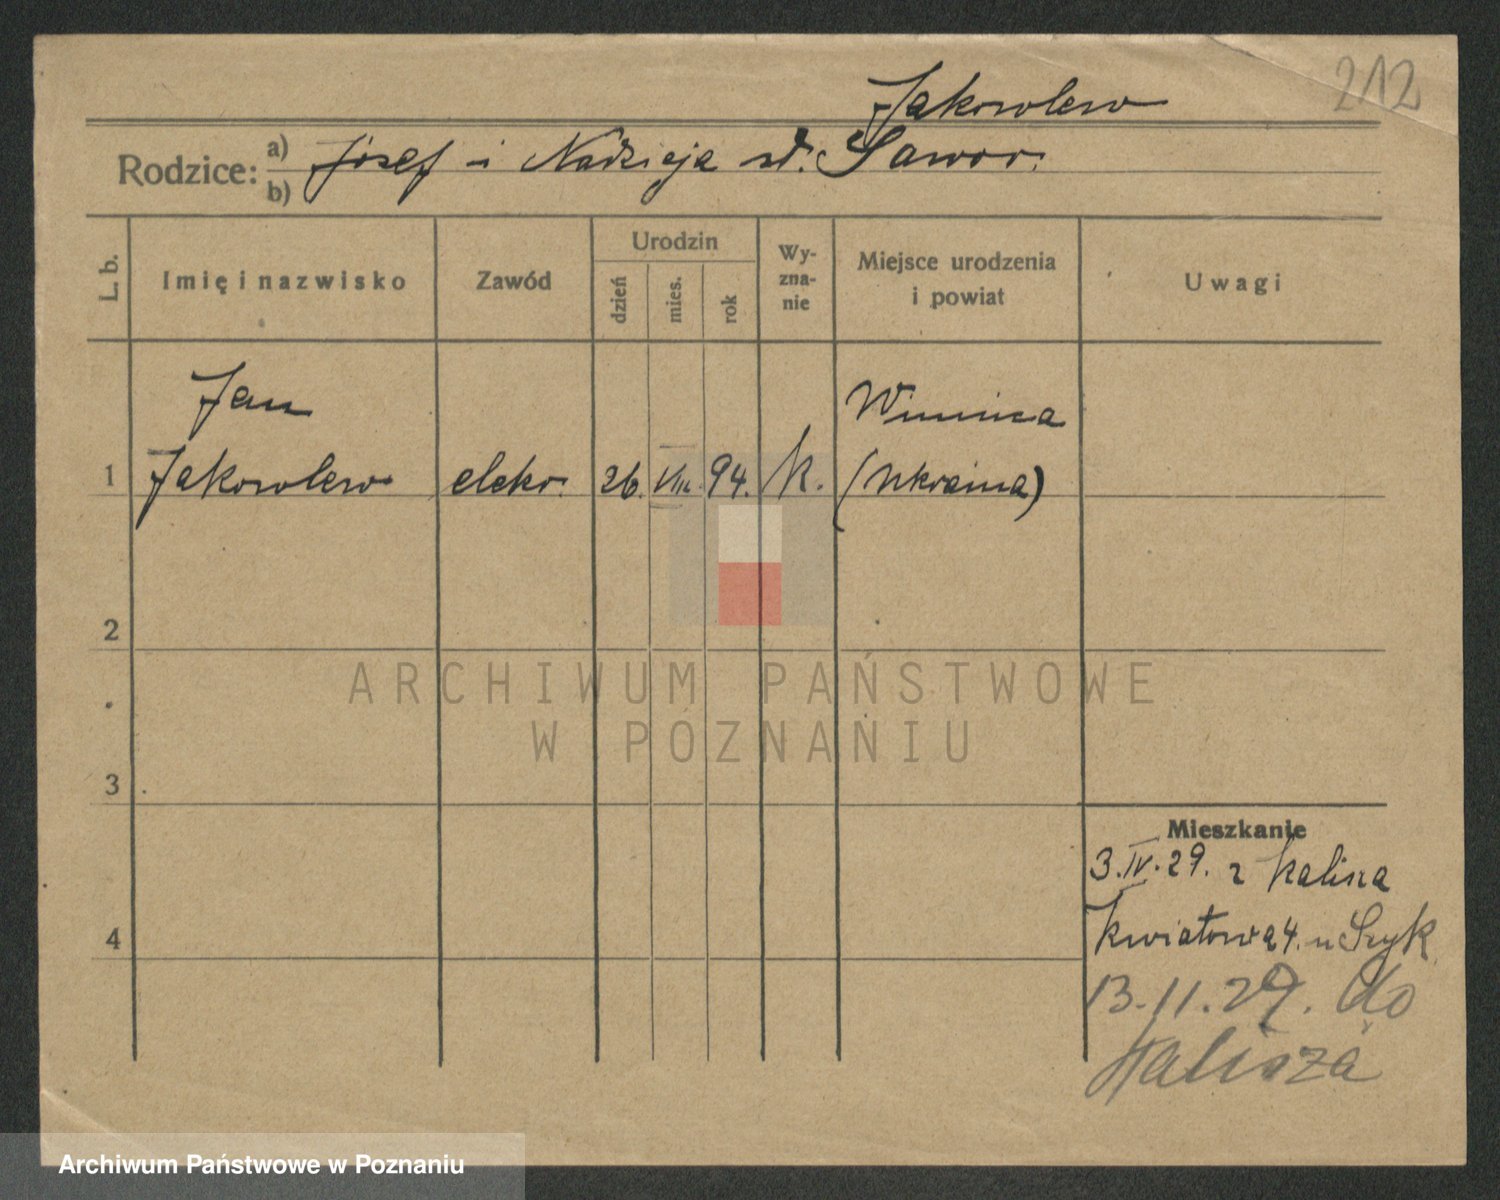 212
Jakowlew
Rodzice: a) Józef i Nadzieja zd. Sawor.
b)
L. b. Imię i nazwisko Zawód Urodzin dzień mies. rok Wyzna-nie Miejsce urodzenia i powiat Uwagi
Jan Winnica
1 Jakowlew elektr. 26. VIII. 94. k. (Ukraina)
2
ARCHIWUM PAŃSTWOWE
W POZNANIU
3
Mieszkanie
3.IV.29. z Kalisza
Kwiatowa 4. u Szyk
4
13.11.29. do
Kalisza
Archiwum Państwowe w Poznaniu